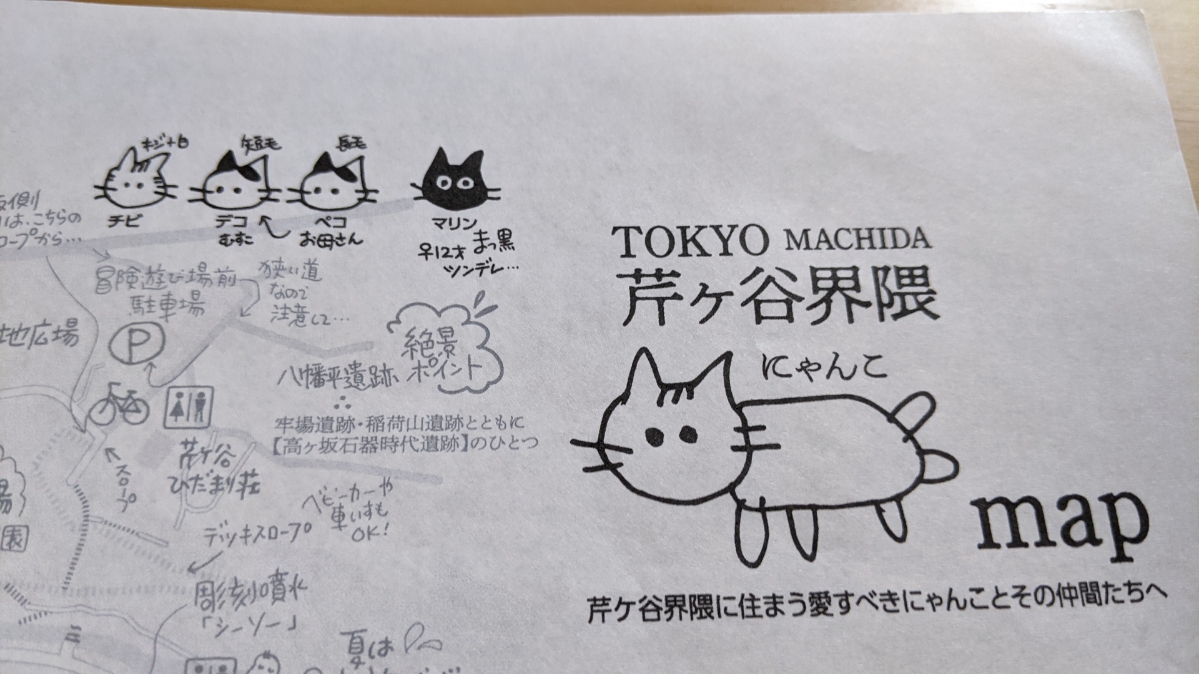 キジ+白
短毛
長毛
チビ
デコ
むすこ
ペコ
お母さん
マリン
♀12才 まっ黒
ツンデレ…
反側
は、こちらの
ロープから…
冒険遊び場前
駐車場
狭い道
なので
注意して…
地広場
P
絶景
ポイント
八幡平遺跡
牢場遺跡・稲荷山遺跡とともに
【高ヶ坂石器時代遺跡】のひとつ
スロープ
芹ヶ谷
ひだまり荘
ベビーカーや
車いすも
OK!
デッキスロープ
場
園
彫刻噴水
「シーソー」
夏は
TOKYO MACHIDA
芹ヶ谷界隈
にゃんこ
map
芹ケ谷界隈に住まう愛すべきにゃんことその仲間たちへ